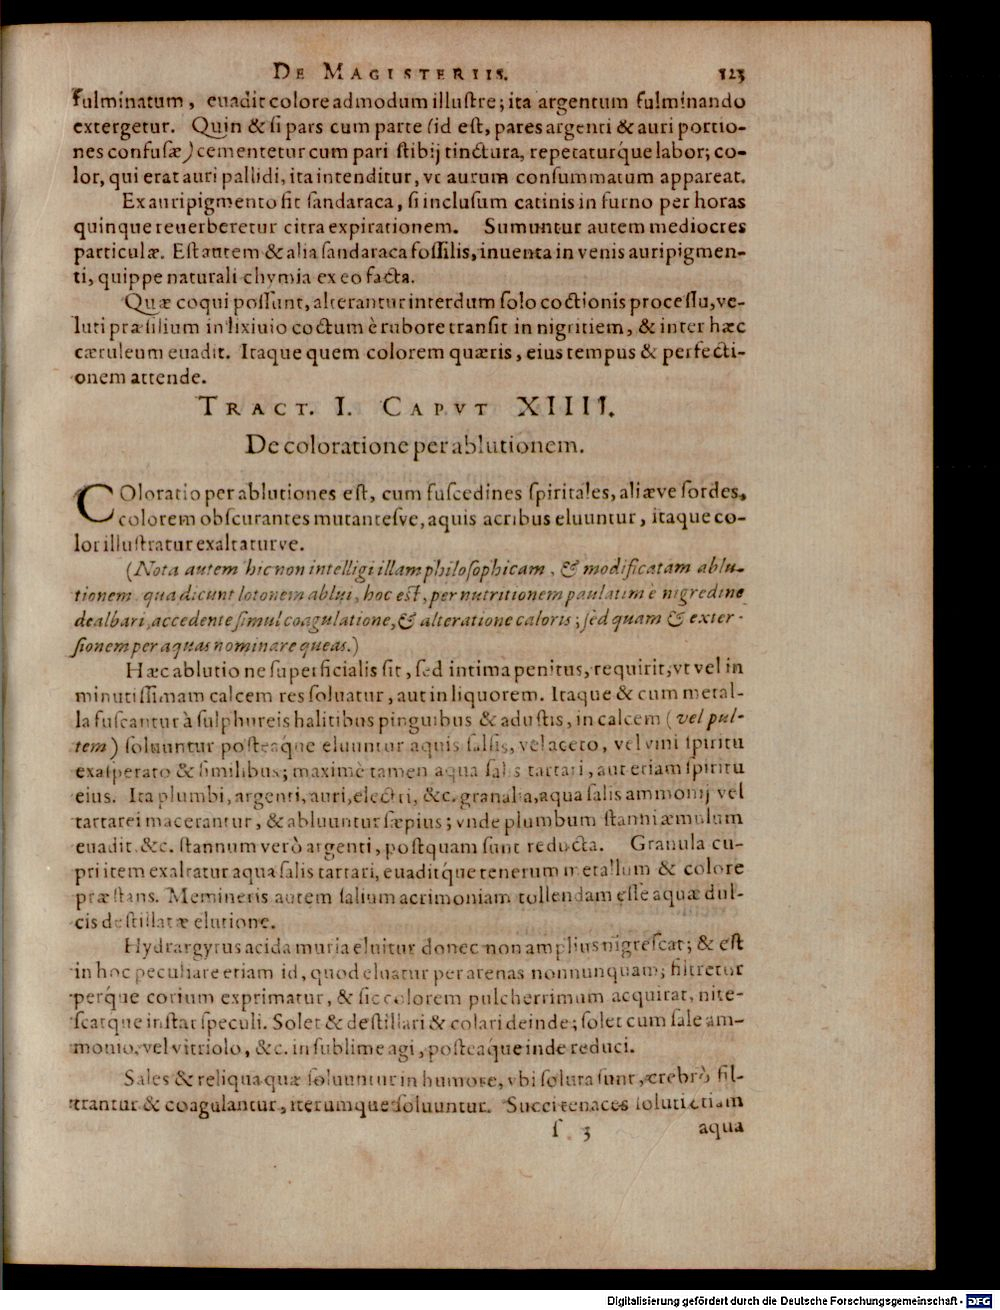 DE MAGISTERIIS. 123
fulminatum, euadit colore admodum illuſtre; ita argentum fulminando
extergetur. Quin & ſi pars cum parte (id eſt, pares argenti & auri portio-
nes confuſæ) cementetur cum pari ſtibij tinctura, repetaturq́ue labor; co-
lor, qui erat auri pallidi, ita intenditur, vt aurum conſummatum appareat.
Ex auripigmento fit ſandaraca, ſi incluſum catinis in furno per horas
quinque reuerberetur citra expirationem. Sumuntur autem mediocres
particulæ. Eſt autem & alia ſandaraca foſſilis, inuenta in venis auripigmen-
ti, quippe naturali chymia ex eo facta.
Quæ coqui poſſunt, alterantur interdum ſolo coctionis proceſſu, ve-
luti præſilium in lixiuio coctum è rubore tranſit in nigritiem, & inter hæc
cæruleum euadit. Itaque quem colorem quæris, eius tempus & perfecti-
onem attende.
TRACT. I. CAPVT XIIII.
De coloratione per ablutionem.
COloratio per ablutiones eſt, cum fuſcedines ſpiritales, aliæve ſordes,
colorem obſcurantes mutantesve, aquis acribus eluuntur, itaque co-
lor illuſtratur exaltaturve.
(Nota autem hic non intelligi illam philoſophicam, & modificatam ablu-
tionem qua dicunt lotonem ablui, hoc eſt, per nutritionem paulatim è nigredine
dealbari, accedente ſimul coagulatione, & alteratione caloris; ſed quam & exter-
ſionem per aquas nominare queas.)
Hæc ablutio ne ſuperficialis ſit, ſed intima penitus, requirit, vt vel in
minutiſſimam calcem res ſoluatur, aut in liquorem. Itaque & cum metal-
la fuſcantur à ſulphureis halitibus pinguibus & aduſtis, in calcem (vel pul-
tem) ſoluuntur poſteaq́ue eluuntur aquis ſalſis, vel aceto, vel vini ſpiritu
exaſperato & ſimilibus; maximè tamen aqua ſalis tartari, aut etiam ſpiritu
eius. Ita plumbi, argenti, auri, electri, &c. granalia, aqua ſalis ammonij vel
tartarei macerantur, & abluuntur ſæpius; vnde plumbum ſtanni æmulum
euadit &c. ſtannum verò argenti, poſtquam ſunt reducta. Granula cu-
pri item exaltatur aqua ſalis tartari, euaditq́ue tenerum metallum & colore
præſtans. Memineris autem ſalium acrimoniam tollendam eſſe aquæ dul-
cis deſtillatæ elutione.
Hydrargyrus acida muria eluitur donec non amplius nigreſcat; & eſt
in hoc peculiare etiam id, quod eluatur per arenas nonnunquam; filtretur
perq́ue corium exprimatur, & ſic colorem pulcherrimum acquirat, nite-
ſcatque inſtar ſpeculi. Solet & deſtillari & colari deinde; ſolet cum ſale am-
monio, vel vitriolo, &c. in ſublime agi, poſteaq́ue inde reduci.
Sales & reliqua quæ ſoluuntur in humore, vbi ſoluta ſunt, crebrò fil-
trantur & coagulantur, iterumque ſoluuntur. Succi tenaces ſoluti etiam
ſ 3 aqua
Digitalisierung gefördert durch die Deutsche Forschungsgemeinschaft - DFG